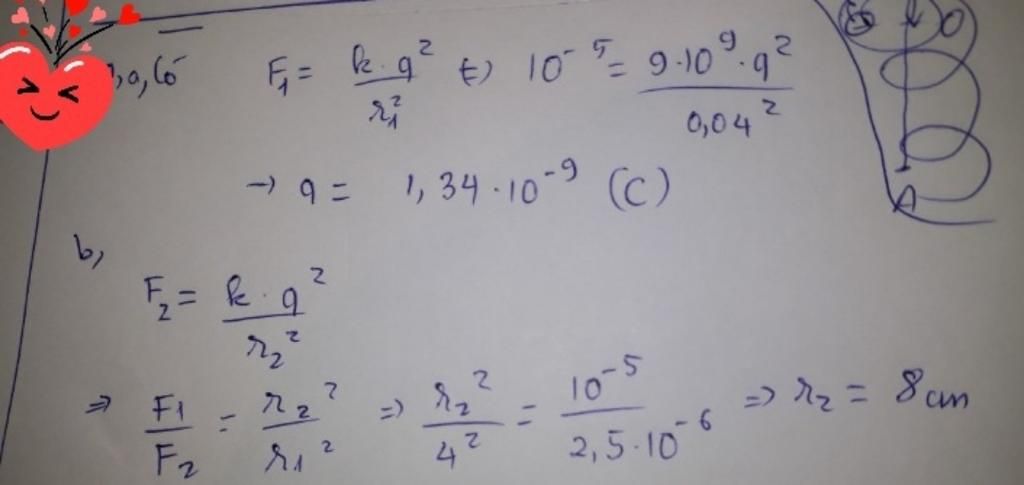 a, Có F₁ = k.q²/r₁² ⇔ 10⁻⁵ = 9·10⁹·q²/0,04²
→ q = 1,34·10⁻⁹ (C)
b,
F₂ = k.q²/r₂²
⇒ F1/F₂ = r₂²/r₁² ⇒ r₂²/4² = 10⁻⁵/2,5·10⁻⁶ ⇒ r₂ = 8cm
O
A